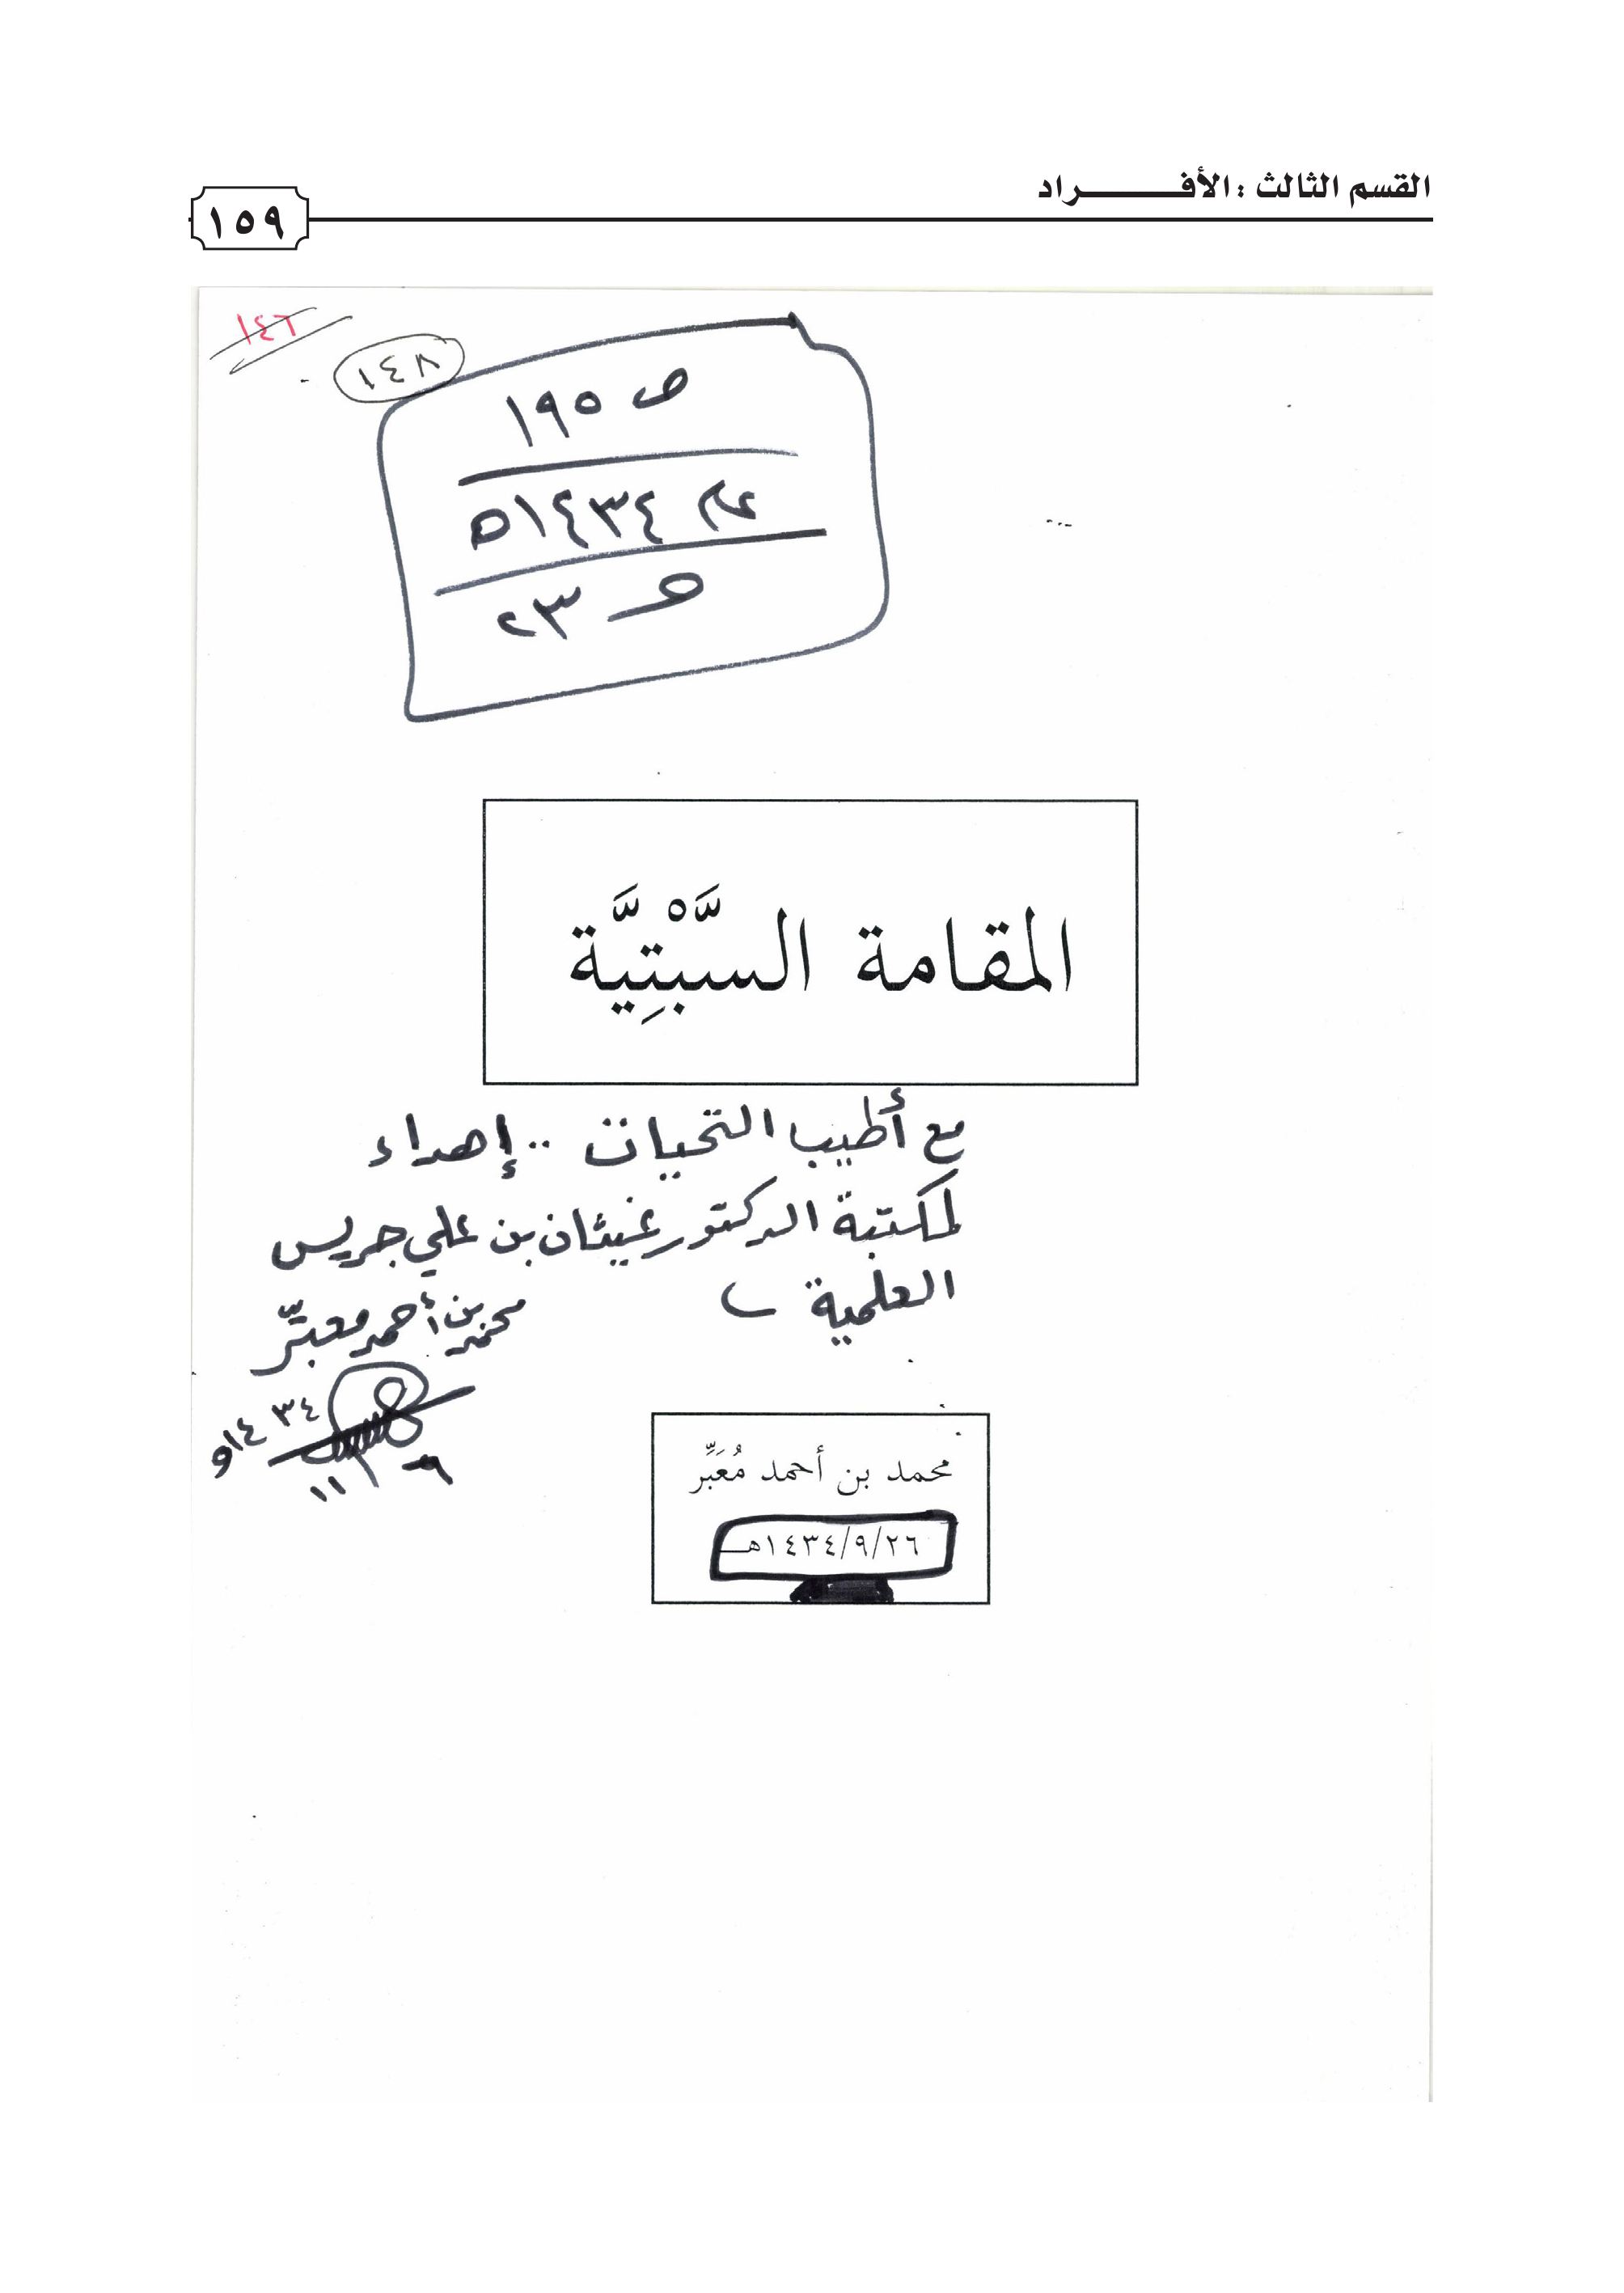 القسم الثالث : الأفـــــــراد
١٥٩
١٤٦
١٤٨
ص ١٩٥
١٤٣٤هـ
٢٣
المقامة السَّبْتِيَّة
مع أطيب التحيات .. إهداء
لمكتبة الدكتور غيثان بن علي جريس
العلمية
محمد بن أحمد معبّر
١٤٣٤
محمد بن أحمد مُعَبِّر
١٤٣٤/٩/٢٦هـ